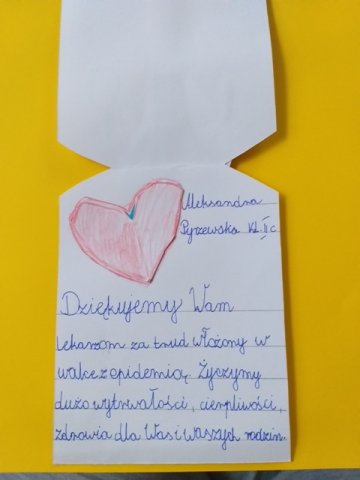 Aleksandra
Pyrzewska kl. II c
Dziękujemy Wam
Lekarzom za trud włożony w
walce z epidemią. Życzymy
dużo wytrwałości, cierpliwości,
zdrowia dla Was i waszych rodzin.